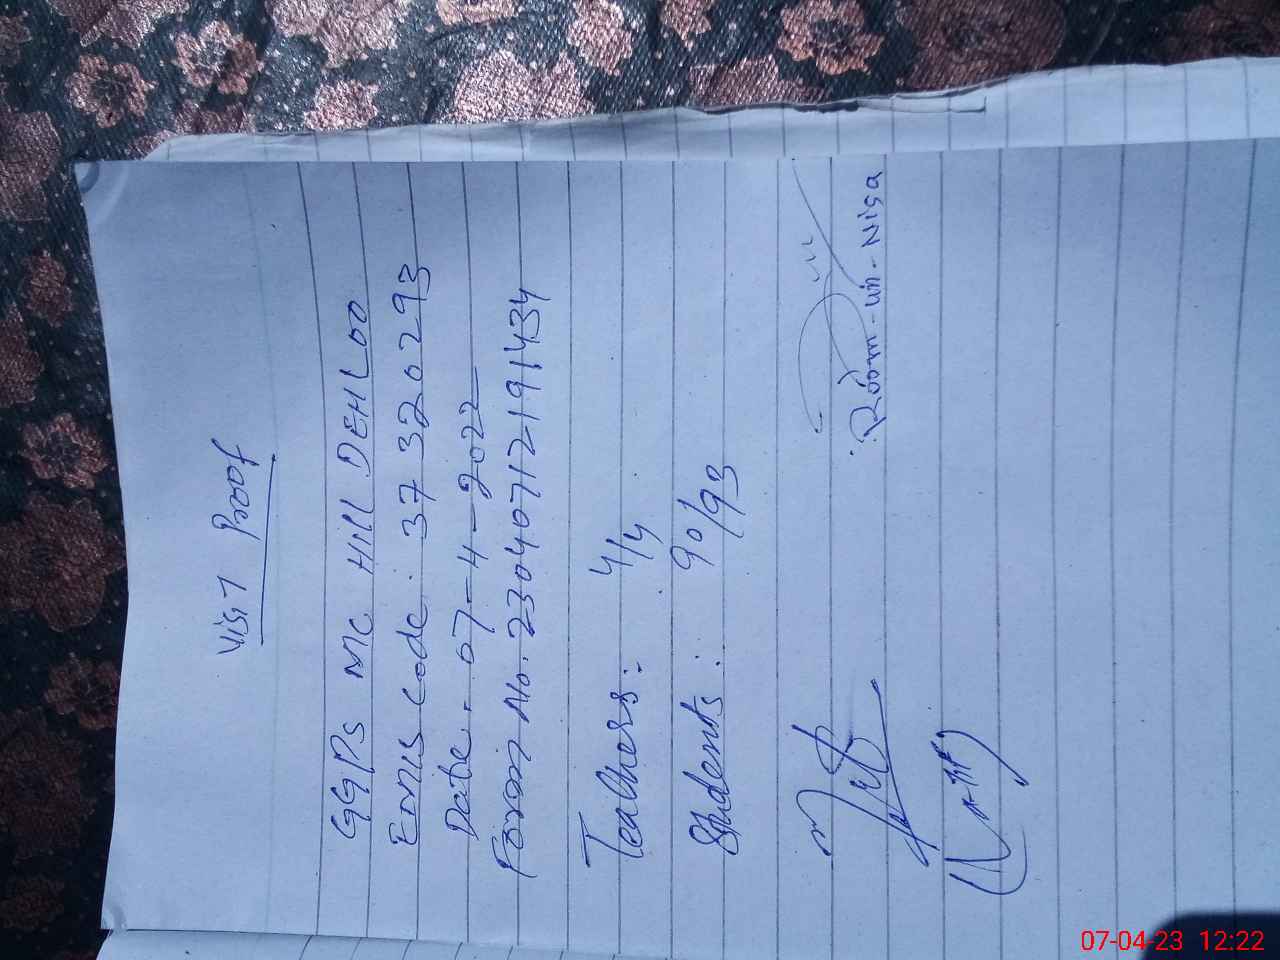 Visit Proof
GGPS MC Hill DEHLOO
Emis Code. 37320293
Date. 07-4-2022
Form No. 23040712191434
Teachers: 4/4
Students: 90/93
Room-un-Nisa
07-04-23 12:22